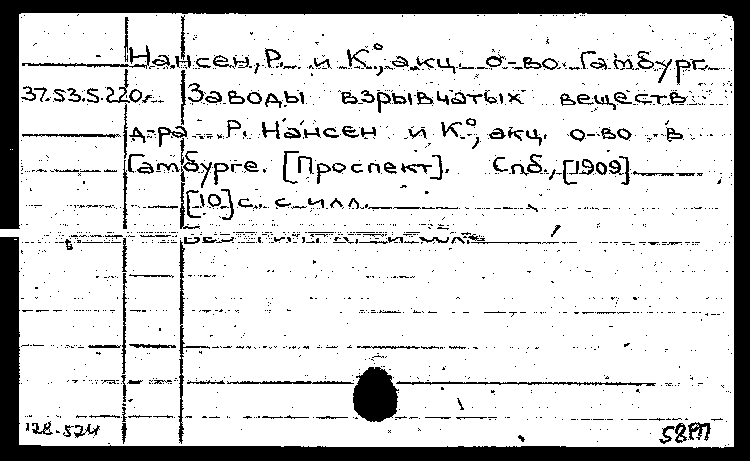 Нансен, Р. и К⁰, акц. о-во. Гамбург.
37.53.5.220. Заводы взрывчатых веществ
д-ра Р. Нансен и К⁰, акц. о-во в
Гамбурге. [Проспект]. Спб., [1909].
[10] с. с илл.
128-524